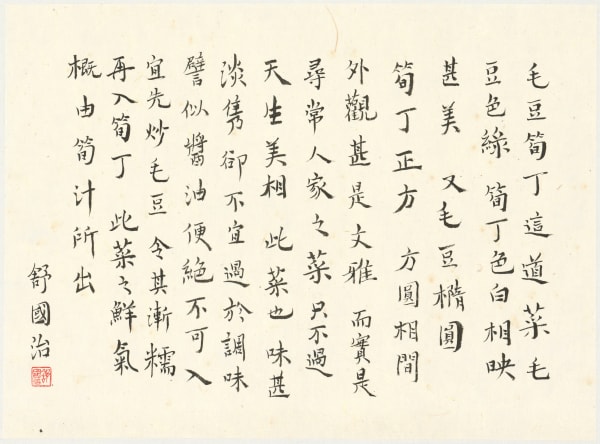 毛豆筍丁這道菜毛
豆色綠 筍丁色白相映
甚美 又毛豆橢圓
筍丁正方 方圓相間
外觀甚是文雅 而實是
尋常人家之菜 只不過
天生美相 此菜也味甚
淡雋卻不宜過於調味
譬似醬油便絕不可入
宜先炒毛豆 令其漸糯
再入筍丁 此菜之鮮氣
概由筍汁所出
舒國治